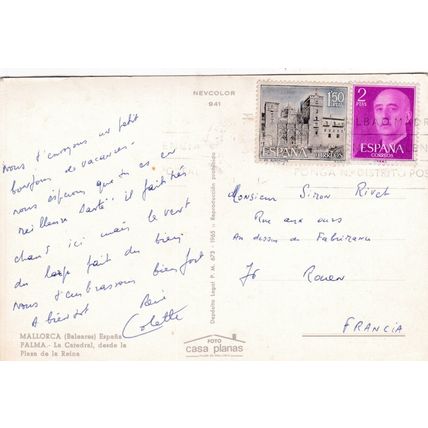 NEVCOLOR
941
Nous t'envoyons un petit
bonjour de vacances.
nous espérons que tu es en
meilleure santé. il fait très
chaud ici mais le vent
du large fait du bien
Nous t'embrassons bien fort
A bientôt
Colette
MALLORCA (Baleares) España
PALMA.- La Catedral, desde la
Plaza de la Reina
Depósito Legal P. M. 673 - 1965 - Reproducción prohibida
FOTO
casa planas
1'50
PTAS
ESPAÑA
CORREOS
2
PTAS
ESPAÑA
CORREOS
BILBAO MADRID
PONGA N.º DISTRITO POSTAL
Monsieur Simon Rivet
Rue aux ours
Au dessus de
76 Rouen
FRANCIA